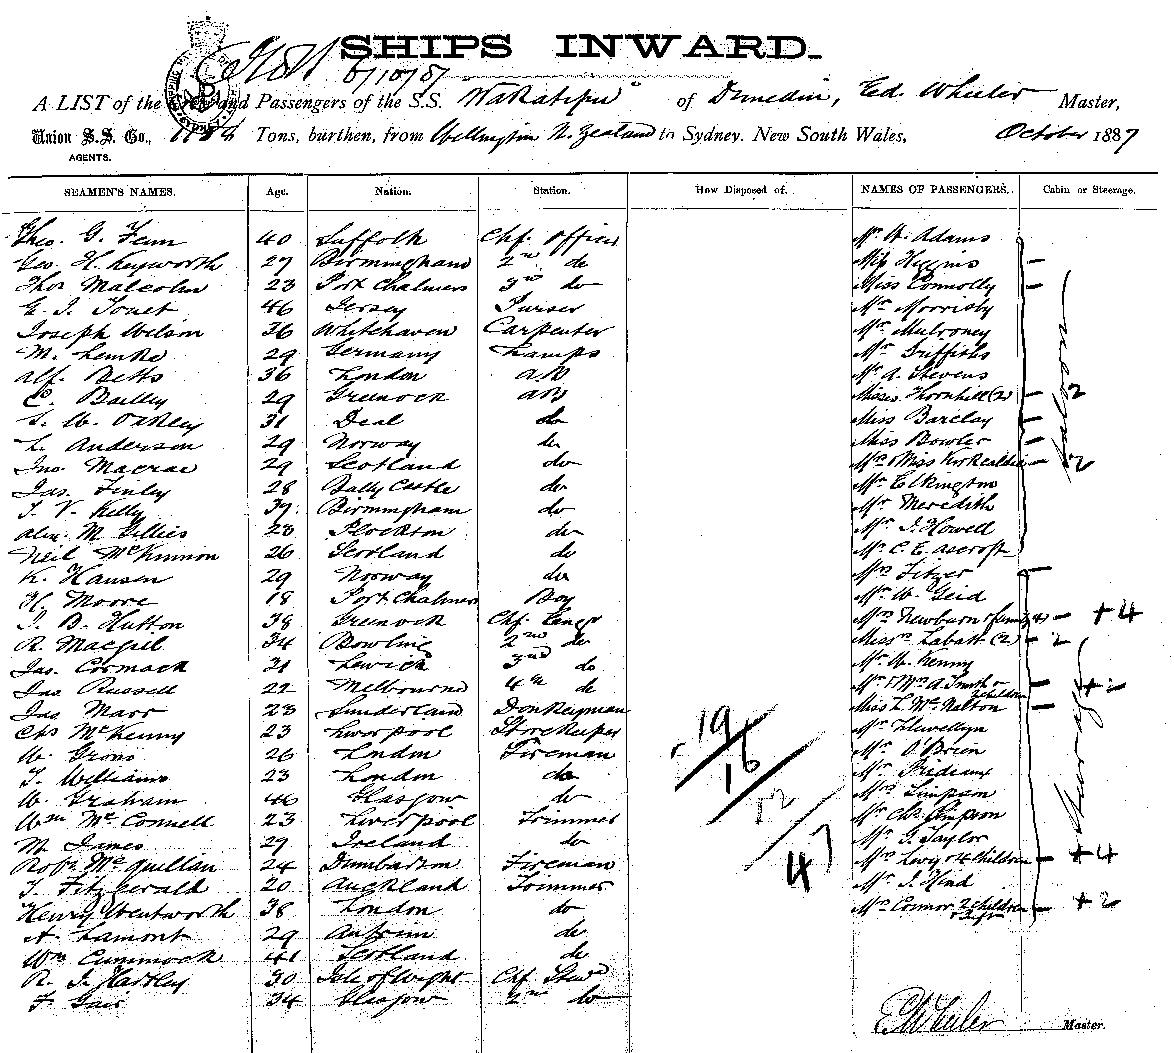 SHIPS INWARD.
6/10/87
A LIST of the Crew and Passengers of the S.S. "Wakatipu" of Dunedin, Ed. Wheeler Master,
Union S.S. Co., Tons, burthen, from Wellington N. Zealand to Sydney. New South Wales, October 1887
AGENTS.
SEAMEN'S NAMES. Age. Nation. Station. How Disposed of. NAMES OF PASSENGERS. Cabin or Steerage.
Theo. G. Fenn 40 Suffolk Chf. Officer Mr W. Adams
Geo. H. Keyworth 27 Birmingham 2nd do Miss Higgins –
Thos Malcolm 23 Port Chalmers 3rd do Miss Connolly –
E. J. Touet 46 Jersey Purser Mr Morrisby
Joseph Wilson 36 Whitehaven Carpenter Mr Mulroney
M. Lemke 29 Germany Lamps Mr Griffiths
Alf. Betts 36 London AB Mr A. Stevens
C. Bailey 29 Greenock AB Misses Thornhill (2) – 2
S. W. Oakley 31 Deal do Miss Barclay –
L. Anderson 29 Norway do Miss Bowler –
Jno. Macrae 29 Scotland do Mrs & Miss Kirkcaldie – 2
Jas. Finley 28 Bally Castle do Mr Elkington
T. V. Kelly 37 Birmingham do Mr Meredith
Alex. M. Gillies 28 Plockton do Mr J. Howell
Neil McKinnon 26 Scotland do Mr C. E. Ascroft
K. Hansen 29 Norway do Mrs Fitzer –
H. Moore 18 Port Chalmers Boy Mr W. Geid
J. B. Hutton 38 Greenock Chf. Engr Mrs Newburn & family (4) – + 4
R. Macgill 34 Bowling 2nd do Misses Labatt (2) – 2
Jas. Cormack 31 Lerwick 3rd do Mr W. Kenny
Jas Russell 22 Melbourne 4th do Mr & Mrs A. Smith & 2 children – + 2
Jas Marr 23 Sunderland Donkeyman Miss L. McNalton –
Chs McKenny 23 Liverpool Storekeeper Mr Llewellyn
W. Grons 26 London Fireman Mr O'Brien
T. Williams 23 London do Mr Prideaux
W. Graham 46 Glasgow do Mrs Simpson
Wm McConnell 23 Liverpool Trimmer Mr Chs Simpson
M. James 29 Ireland do Mr G. Taylor
Robt McQuillan 24 Dumbarton Fireman Mrs Levy & 4 children – + 4
T. Fitzgerald 20 Auckland Trimmer Mr J. Hind
Henry Wentworth 38 London do Mrs Connor 2 children – + 2
A. Lamont 29 Antrim do
Wm Cummock 41 Scotland do
R. J. Hartley 30 Isle of Wight Chf. Stewd
F. Gair 34 Glasgow 2nd do
Saloon
Steerage
19
16
12
47
E Wheeler Master.